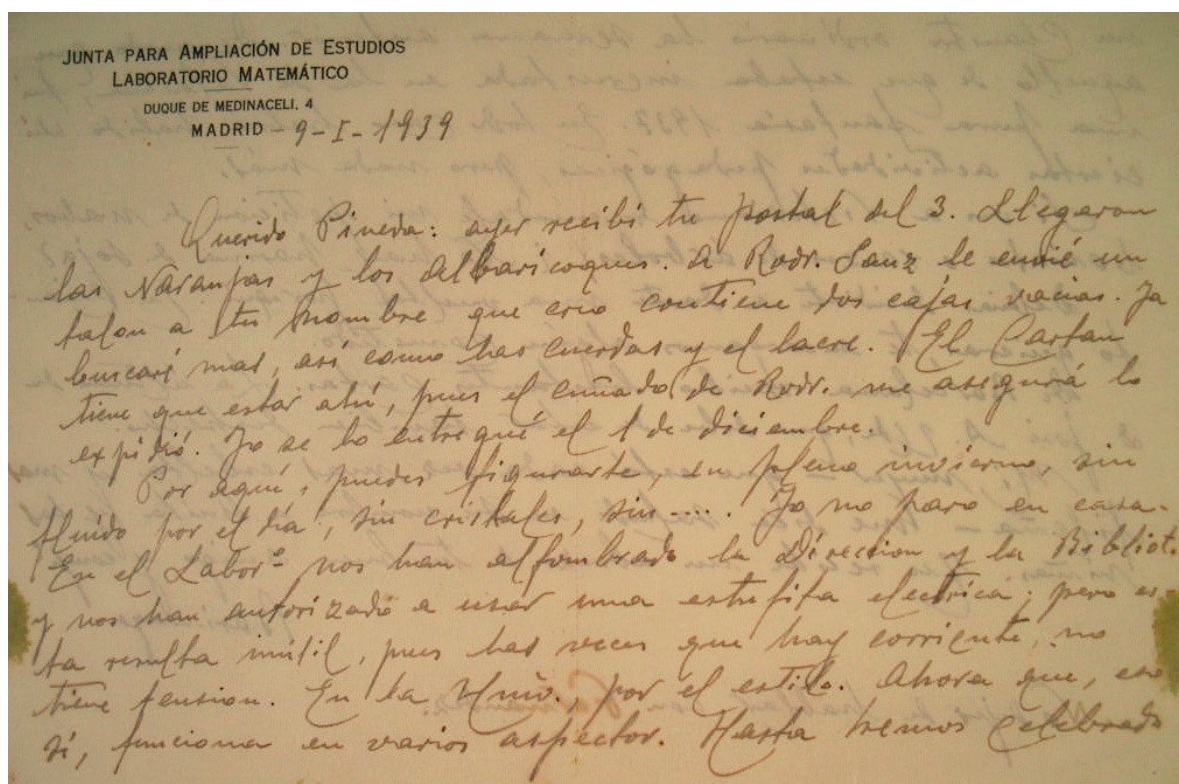 JUNTA PARA AMPLIACIÓN DE ESTUDIOS
LABORATORIO MATEMÁTICO
DUQUE DE MEDINACELI, 4
MADRID - 9-I-1939
Querido Pineda: ayer recibí tu postal del 3. Llegaron
las Naranjas y los Albaricoques. A Rodr. Sanz le envié un
talon a tu nombre que creo contiene dos cajas vacias. Ya
buscaré mas, asi como las cuerdas y el lacre. El Cartan
tiene que estar ahí, pues el cuñado de Rodr. me aseguró lo
expidió. Yo se lo entregué el 1 de diciembre.
Por aquí, puedes figurarte, en pleno invierno, sin
fluido por el día, sin cristales, sin..... Yo no paro en casa.
En el Labor.º nos han alfombrado la Direccion y la Bibliot.
y nos han autorizado a usar una estufita electrica; pero es-
ta resulta inútil, pues las veces que hay corriente, no
tiene tension. En la Univ. por el estilo. Ahora que, eso
sí, funciona en varios aspectos. Hasta hemos celebrado